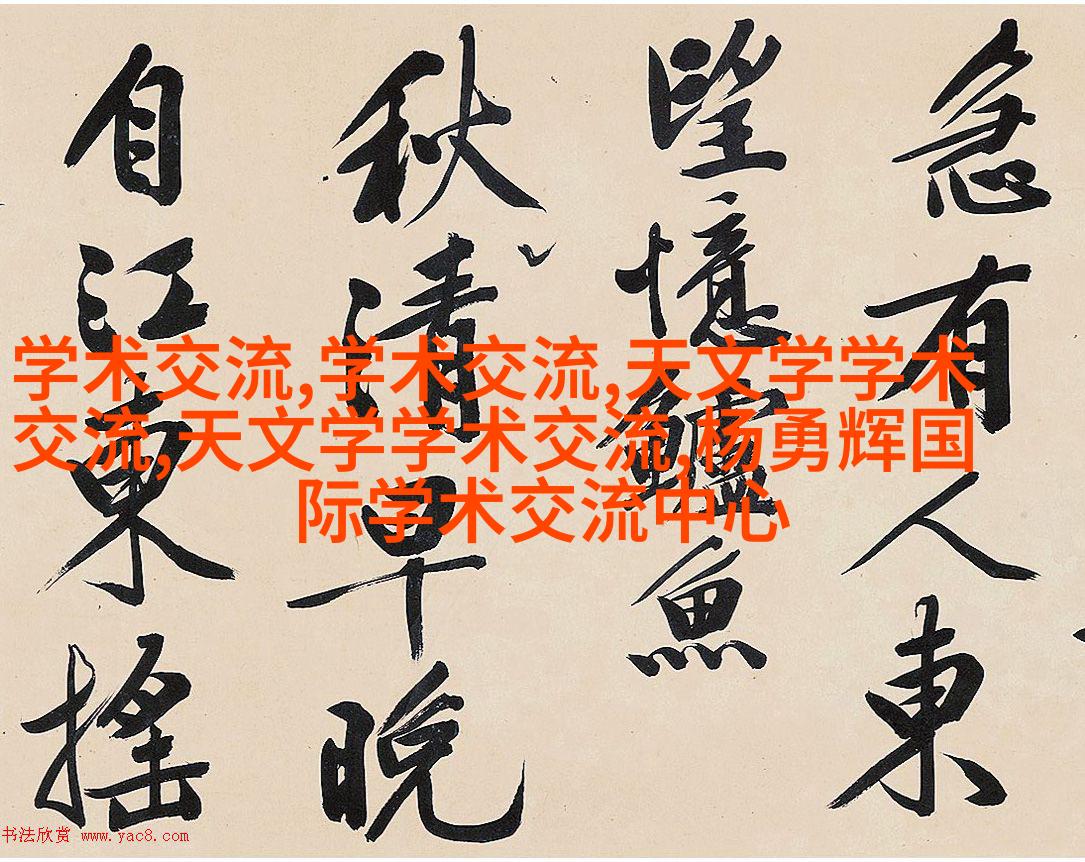 急有人東
望憶鱸魚
秋清早晚
自江東搖
学术交流,学术交流,天文学学术
交流,天文学学术交流,杨勇辉国
际学术交流中心
书法欣赏 www.yac8.com